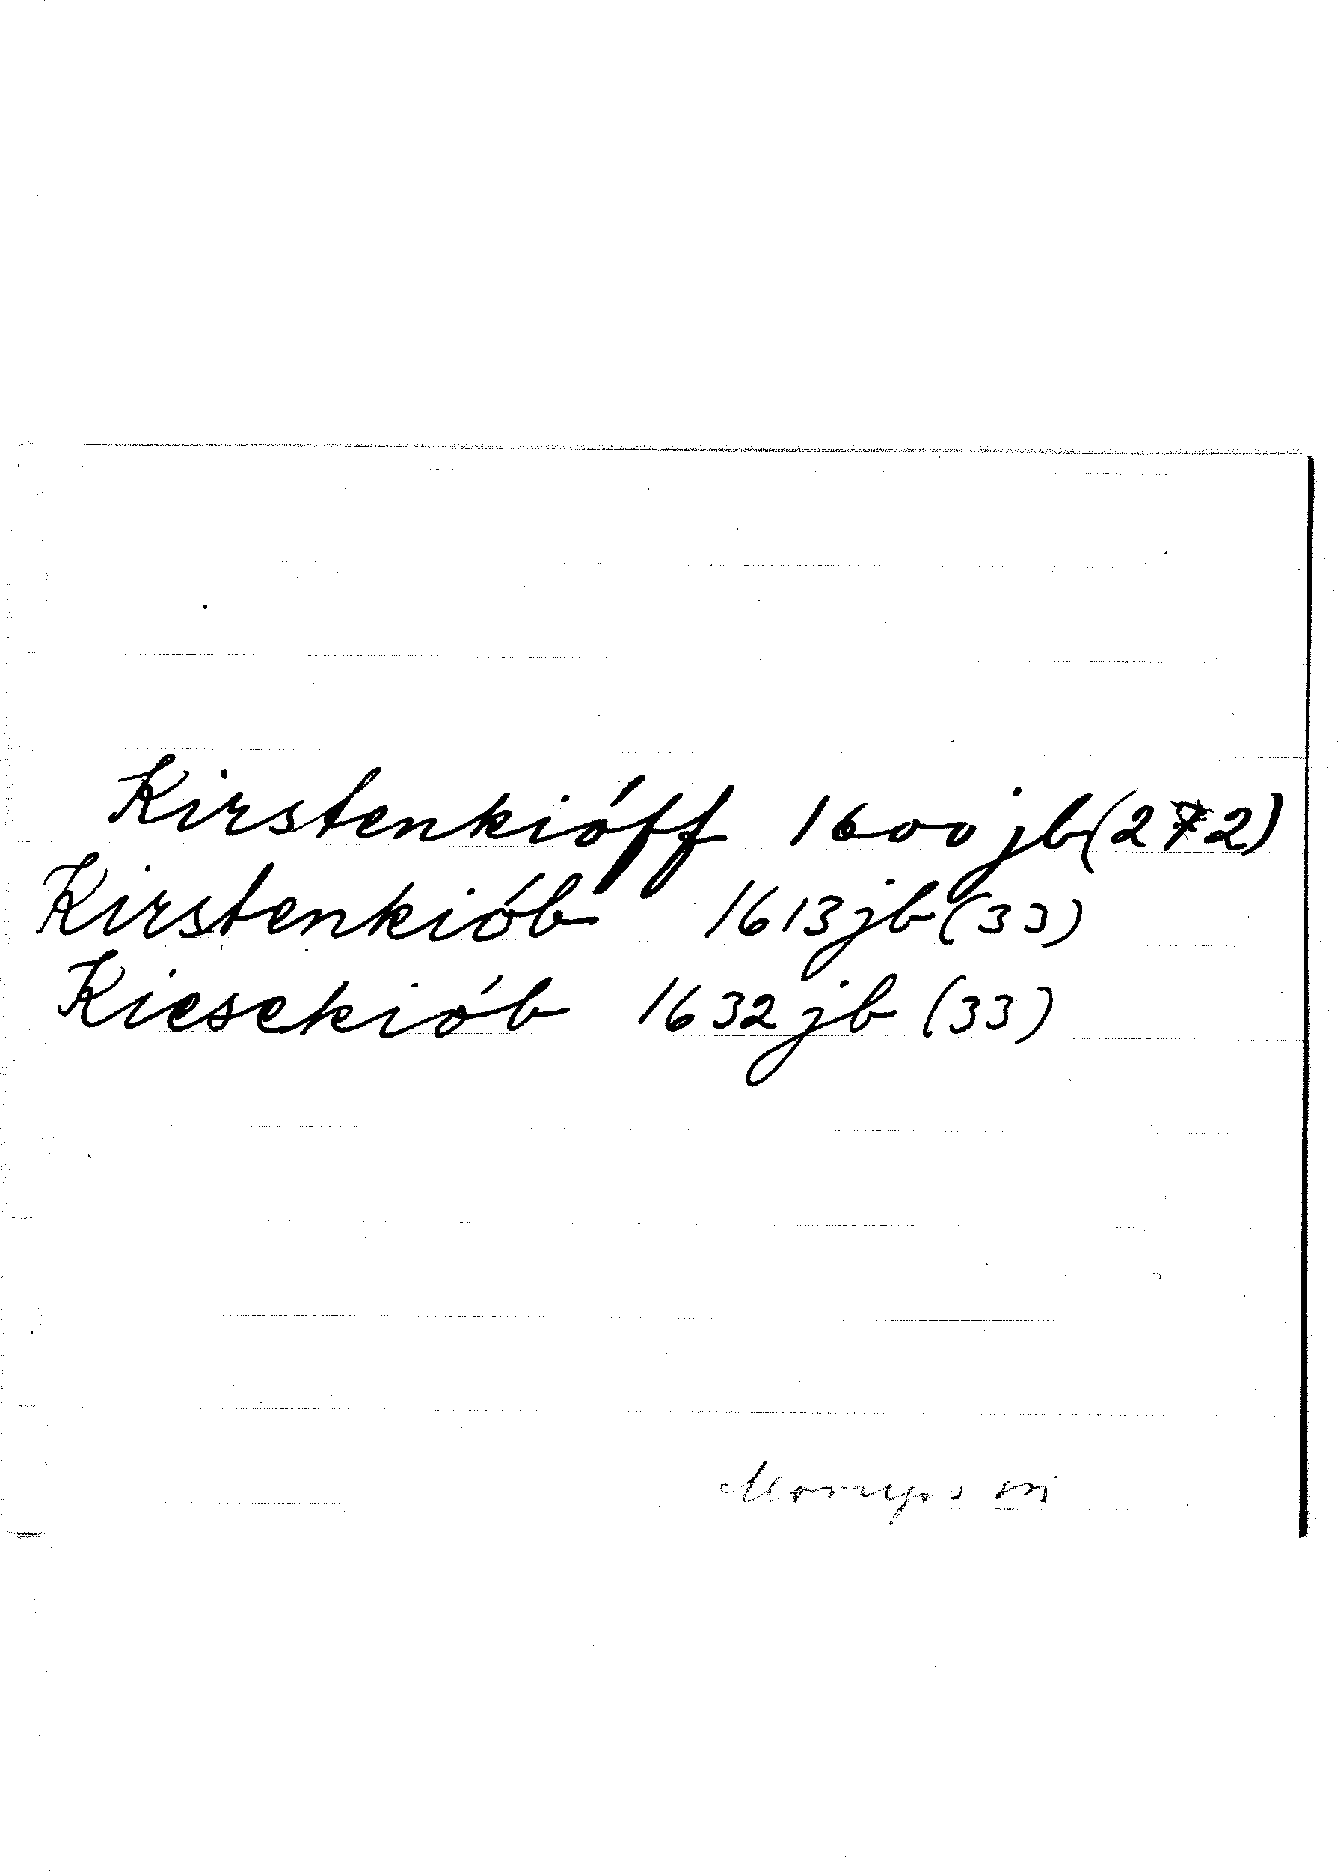 Kirstenkióff 1600 jb (272)
Kirstenkiób 1613 jb (33)
Kiesekiób 1632 jb (33)